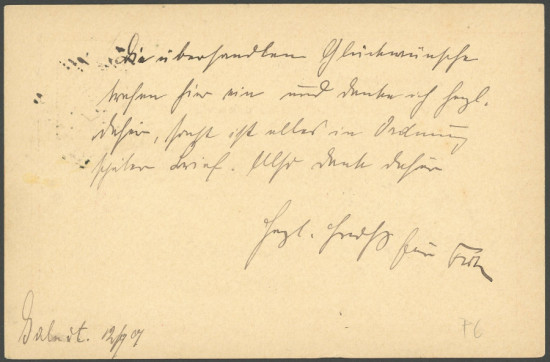 Die übersandten Glückwünsche
trafen hier ein und danke ich herzl.
dafür, sonst ist alles in Ordnung
später Brief. Also Dank dafür
Herzl. Gruß
12/9 07